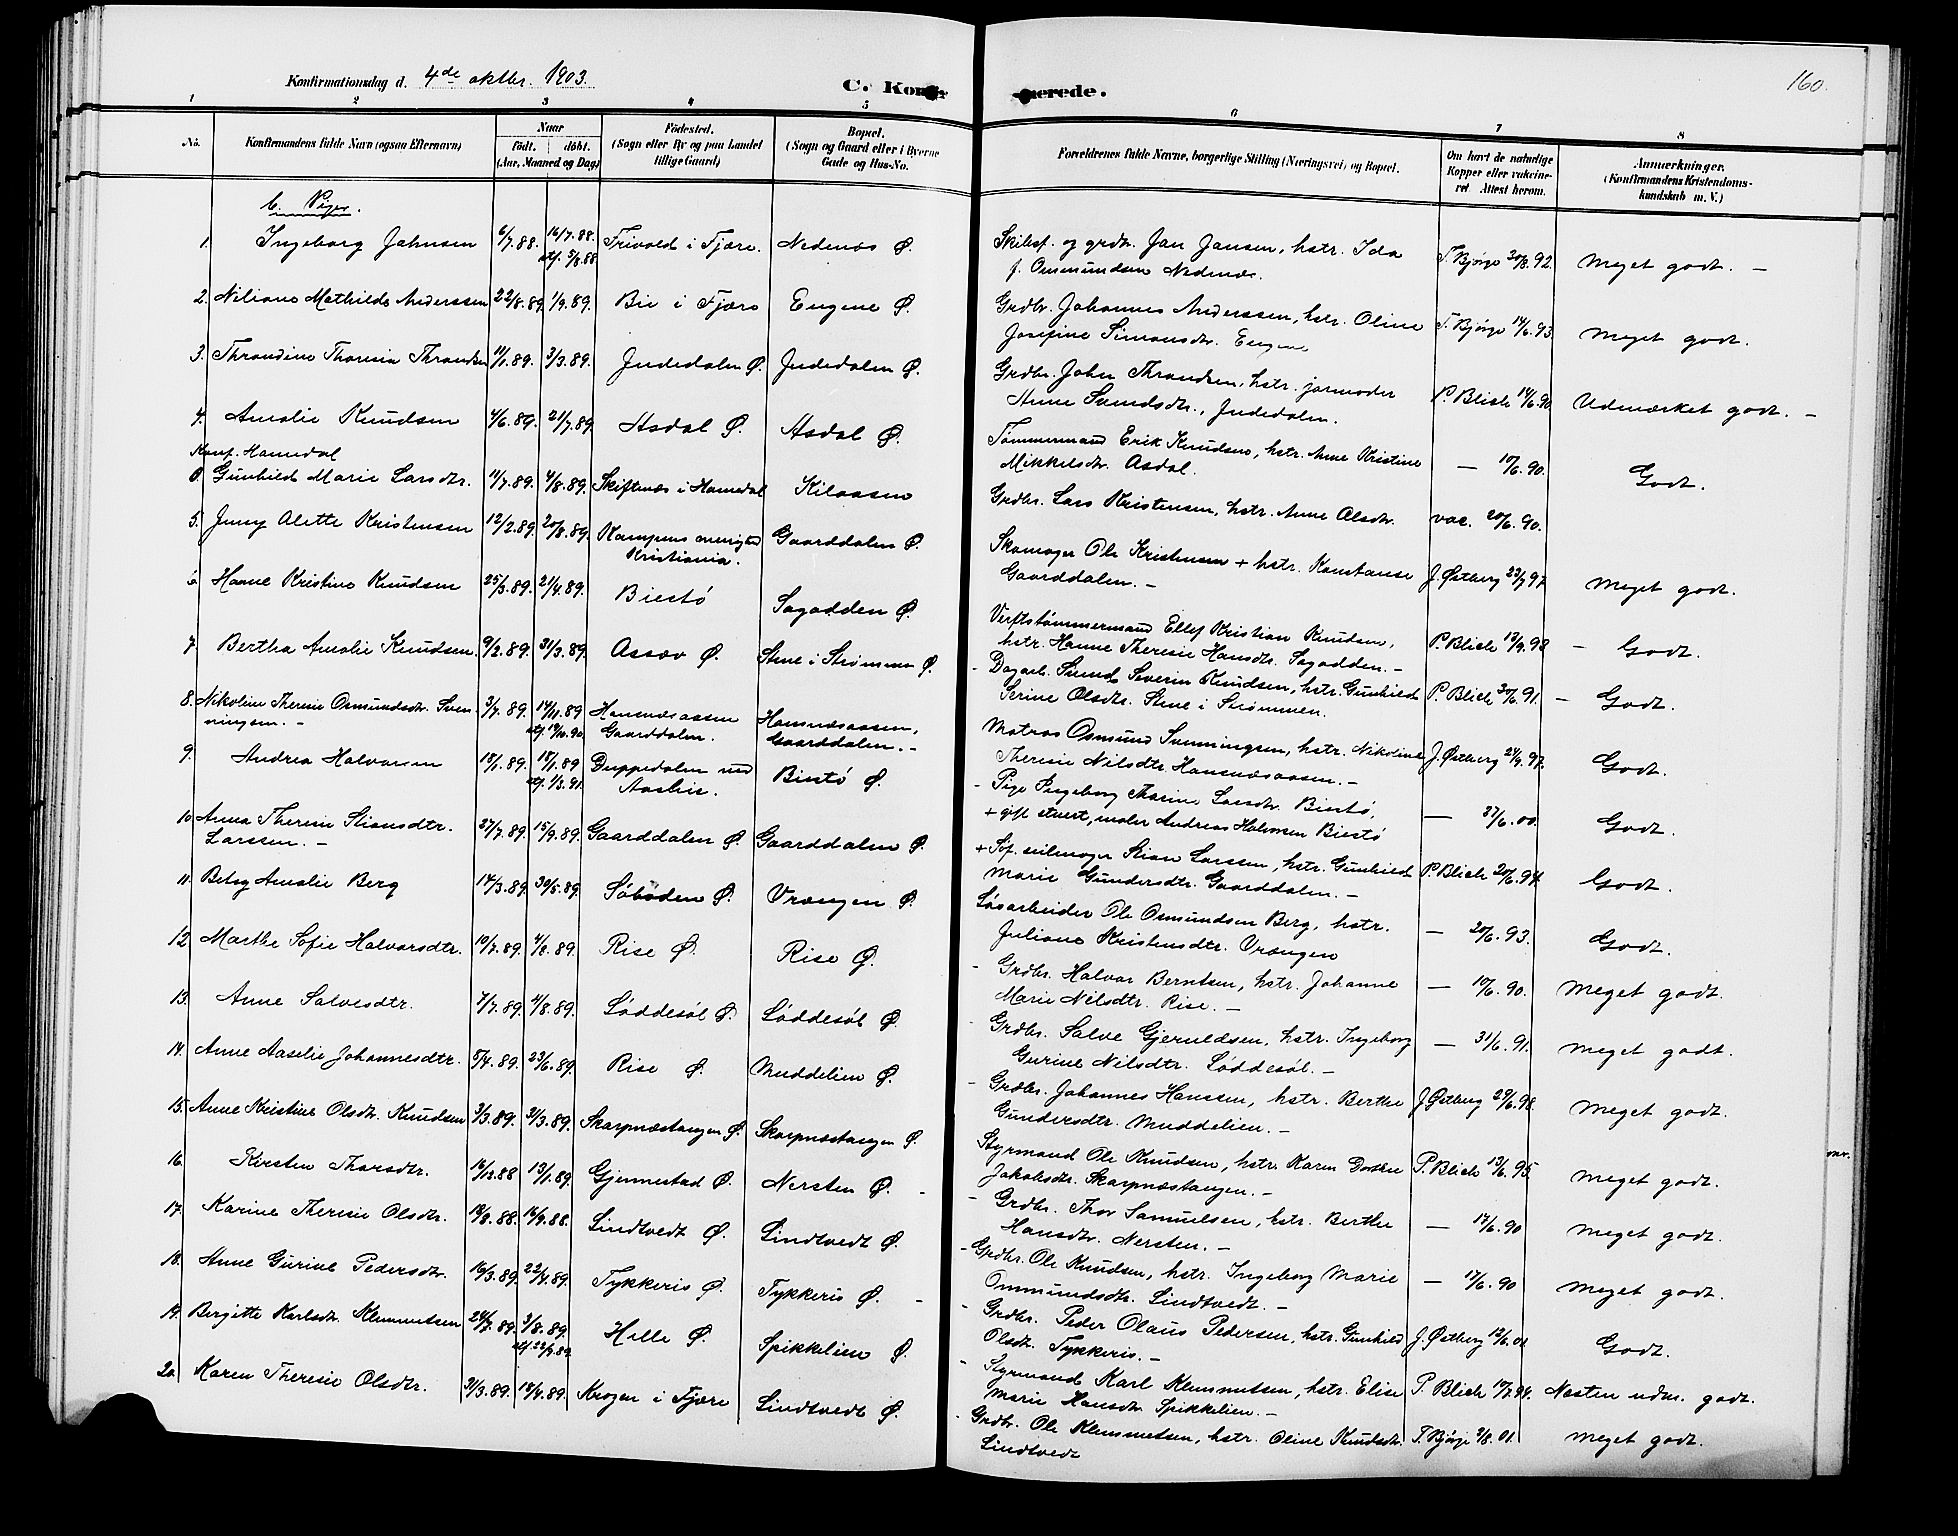 Konfirmationsdag d. 4de oktbr. 1903.
C. Konfirmerede.
160.
1 2 3 4 5 6 7 8
No. Konfirmandens fulde Navn (ogsaa Efternavn)
Naar født. døbt. (Aar, Maaned og Dag)
Fødested. (Sogn eller By og paa Landet tillige Gaard)
Bopæl. (Sogn og Gaard eller i Byerne Gade og Hus-No.
Forældrenes fulde Navne, borgerlige Stilling (Næringsvei) og Bopæl.
Om havt de naturlige Kopper eller vakcineret. Attest herom.
Anmærkninger. (Konfirmandens Kristendomskundskab m. V.)
b. Piger.
1. Ingeborg Jahnsen 6/7.88. 16/7.88. stf. 5/8.88 Trivold i Fjære. Nedenæs Ø. Skibsf. og grdbr. Jan Jansen, hstr. Ida
f. Ommundsen Nedenæs. T. Bjørge 30/8.92. Meget godt. –
2. Niliane Mathilde Anderssen 22/8.89. 1/9.89. Bie i Fjære Eugene Ø. Grdbr. Johannes Anderssen, hstr. Oline
Josefine Simonsdtr. Eugene T. Bjørge 14/6.93. Meget godt.
3. Throndine Thoresia Throndsen 11/1.89. 3/3.89. Judedalen Ø. Judedalen Ø. Grdbr. John Throndsen, hstr. jormoder
Anne Svendsdtr., Judedalen. P. Blich 14/6.90 Udmærket godt. –
4. Amalie Knudsen 4/6.89. 21/7.89. Asdal Ø. Asdal Ø. Tømmermand Erik Knudsen, hstr. Anne Kristine
Mikkelsdtr. Asdal. — 10/6.90. Godt.
Konf. Hannedal
0. Gunhild Marie Larsdtr. 11/7.89. 4/8.89. Skiftenæs i Hannedal Kilaasen Grdbr. Lars Kristensen, hstr. Anne Olsdtr. vac. 20/6.90.
5. Jenny Alette Kristensen 12/2.89. 20/8.89. Kampens menighed
Kristiania. Gaarddalen Ø. Skomager Ole Kristensen + hstr. Konstanse
Gaarddalen. – J. Østberg 23/7.97. Meget godt.
6. Hanne Kristine Knudsen 25/3.89. 21/4.89. Biestø Sagodden Ø. Verftstømmermand Ellef Kristian Knudsen,
hstr. Hanne Theresie Hansdtr. Sagodden. – P. Blich 13/9.98 – Godt.
7. Bertha Amalie Knudsen 9/2.89. 31/3.89. Assæv Ø. Stene i Strømmen Ø. Dagarb. Svend Severin Knudsen, hstr. Gunhild
Serine Olsdtr. Stene i Strømmen. P. Blich 30/6.91. – Godt.
8. Nikoline Theresie Osmundsdtr. Sven
ningsen. – 3/7.89. 14/11.89 stf. 19/10.90. Hansnæsaasen
Gaarddalen. Hansnæsaasen,
Gaarddalen. – Matros Osmund Svenningsen, hstr. Nikoline
Theresie Nilsdtr. Hansnæsaasen. – J. Østberg 24/9.97. Godt.
9. Andrea Halvorsen 18/1.89. 18/1.89 stf. 1/3.91. Duppedalen ved
Aaslie. Biestø Ø. Pige Ingeborg Thorine Larsdtr. Biestø,
+ gift stuert, maler Andreas Halvorsen Biestø — 27/6.00. Godt.
10. Anna Theresie Stiansdtr.
Larssen. – 27/7.89. 15/9.89. Gaarddalen Ø. Gaarddalen Ø. + Søf. seilmager Stian Larssen, hstr. Gunhild
Marie Gundersdtr. Gaarddalen. – P. Blich 20/6.94. Godt.
11. Betsy Amalie Berg 14/3.89. 30/5.89. Søboden Ø. Vrængen Ø. Løsarbeider Ole Osmundsen Berg, hstr.
Juliane Kristensdtr. Vrængen — 20/6.93. Godt.
12. Marthe Sofie Halvorsdtr. 10/7.89. 4/8.89. Rise Ø. Rise Ø. Grdbr. Halvor Berntsen, hstr. Johanne
Marie Nilsdtr. Rise. – — 10/6.90. Meget godt.
13. Anne Salvesdtr. 7/7.89. 4/8.89. Løddesøl Ø. Løddesøl Ø. Grdbr. Salve Gjeruldsen, hstr. Ingeborg
Gurine Nilsdtr. Løddesøl. – — 31/6.91. Meget godt.
14. Anne Aaselie Johannesdtr. 5/4.89. 23/6.89. Rise Ø. Muddelien Ø. Grdbr. Johannes Hanssen, hstr. Berthe
Gundersdtr. Muddelien. – J. Østberg 29/6.98. Meget godt.
15. Anne Kristine Olsdtr. Knudsen 3/3.89. 31/3.89. Skarpnæstangen Ø. Skarpnæstangen Ø. Styrmand Ole Knudsen, hstr. Karen Dorthe
Jakobsdtr. Skarpnæstangen. – P. Blich 13/6.95. Meget godt.
16. Kirsten Thorsdtr. 16/12.88 13/1.89. Gjennestad Ø. Nersten Ø. – Grdbr. Thor Samuelsen, hstr. Berthe
Hansdtr. Nersten. – — 17/6.90 Meget godt.
17. Karine Theresie Olsdtr. 18/8.88. 16/9.88. Lindtvedt Ø. Lindtvedt Ø. Grdbr. Ole Knudsen, hstr. Ingeborg Marie
Ommundsdtr. Lindtvedt. – — 17/6.90 Meget godt.
18. Anne Gurine Pedersdtr. 16/3.89. 22/4.89. Tykkeris Ø. Tykkeris Ø. – Grdbr. Peder Olaus Pedersen, hstr. Gunhild
Olsdtr. Tykkeris. – J. Østberg 12/6.01 Godt.
19. Bergitte Karlsdtr. Klemmetsen 24/7.89. 3/8.89. stf. 22/9.89. Helle Ø. Spikkelien Ø. Styrmand Karl Klemmetsen, hstr. Elise
Marie Hansdtr. Spikkelien. – P. Blich 10/7.94. Næsten udm. godt.
20. Karen Theresie Olsdtr. 31/3.89. 18/4.89. Kroger i Fjære Lindtvedt Ø. Grdbr. Ole Klemmetsen, hstr. Oline Knudsdtr.
Lindtvedt T. Bjørge 2/8.01. Meget godt.